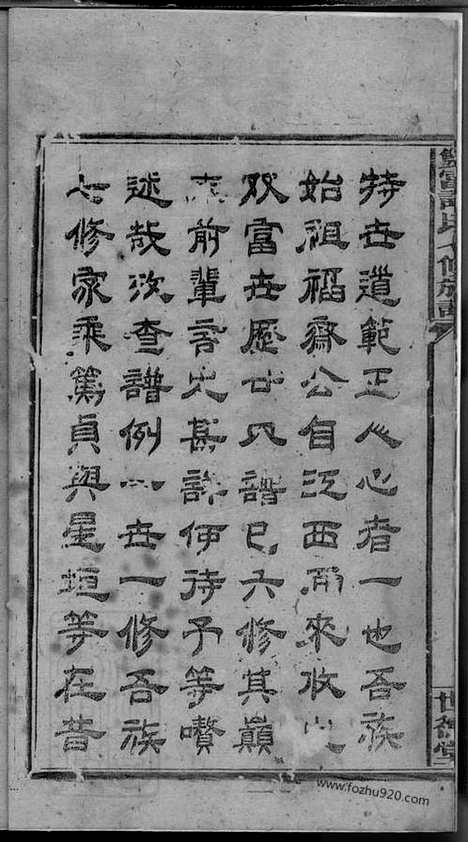 持世道範正人心者一也吾族
始祖福齋公自江西而來攸之
双富世歷廿譜已六修其巔
末前輩言之甚詳何待予等贅
述哉查譜例世一修吾族
七修家乘篤貞與星垣等在昔
氏七修族譜
世德堂
www.fozhu920.com